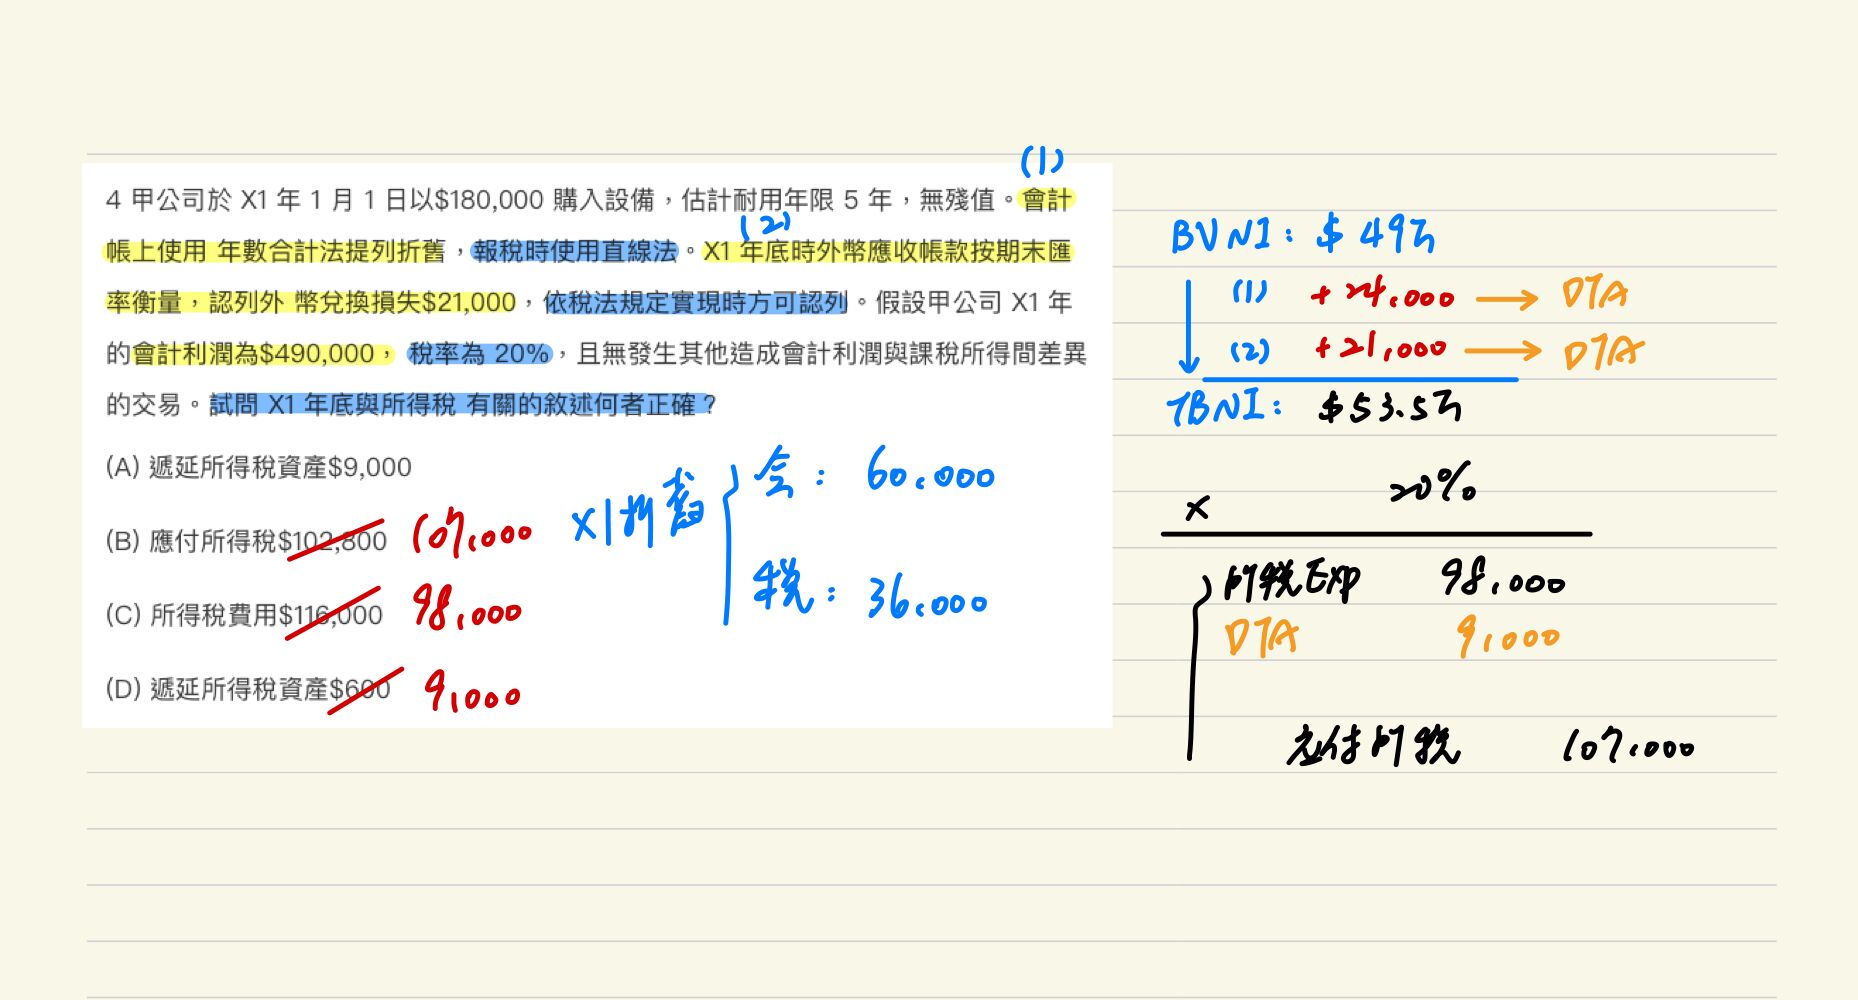 (1)
4 甲公司於 X1 年 1 月 1 日以$180,000 購入設備，估計耐用年限 5 年，無殘值。會計
(2)
帳上使用 年數合計法提列折舊，報稅時使用直線法。X1 年底時外幣應收帳款按期末匯
率衡量，認列外 幣兌換損失$21,000，依稅法規定實現時方可認列。假設甲公司 X1 年
的會計利潤為$490,000， 稅率為 20%，且無發生其他造成會計利潤與課稅所得間差異
的交易。試問 X1 年底與所得稅 有關的敘述何者正確？
(A) 遞延所得稅資產$9,000
(B) 應付所得稅$102,800 107,000
(C) 所得稅費用$116,000 98,000
(D) 遞延所得稅資產$600 9,000
X1折舊
会： 60,000
税： 36,000
BVNI: $ 49万
(1) +24,000 → DTA
(2) +21,000 → DTA
TBNI: $53.5万
× 20%
所税Exp 98,000
DTA 9,000
应付所税 107,000